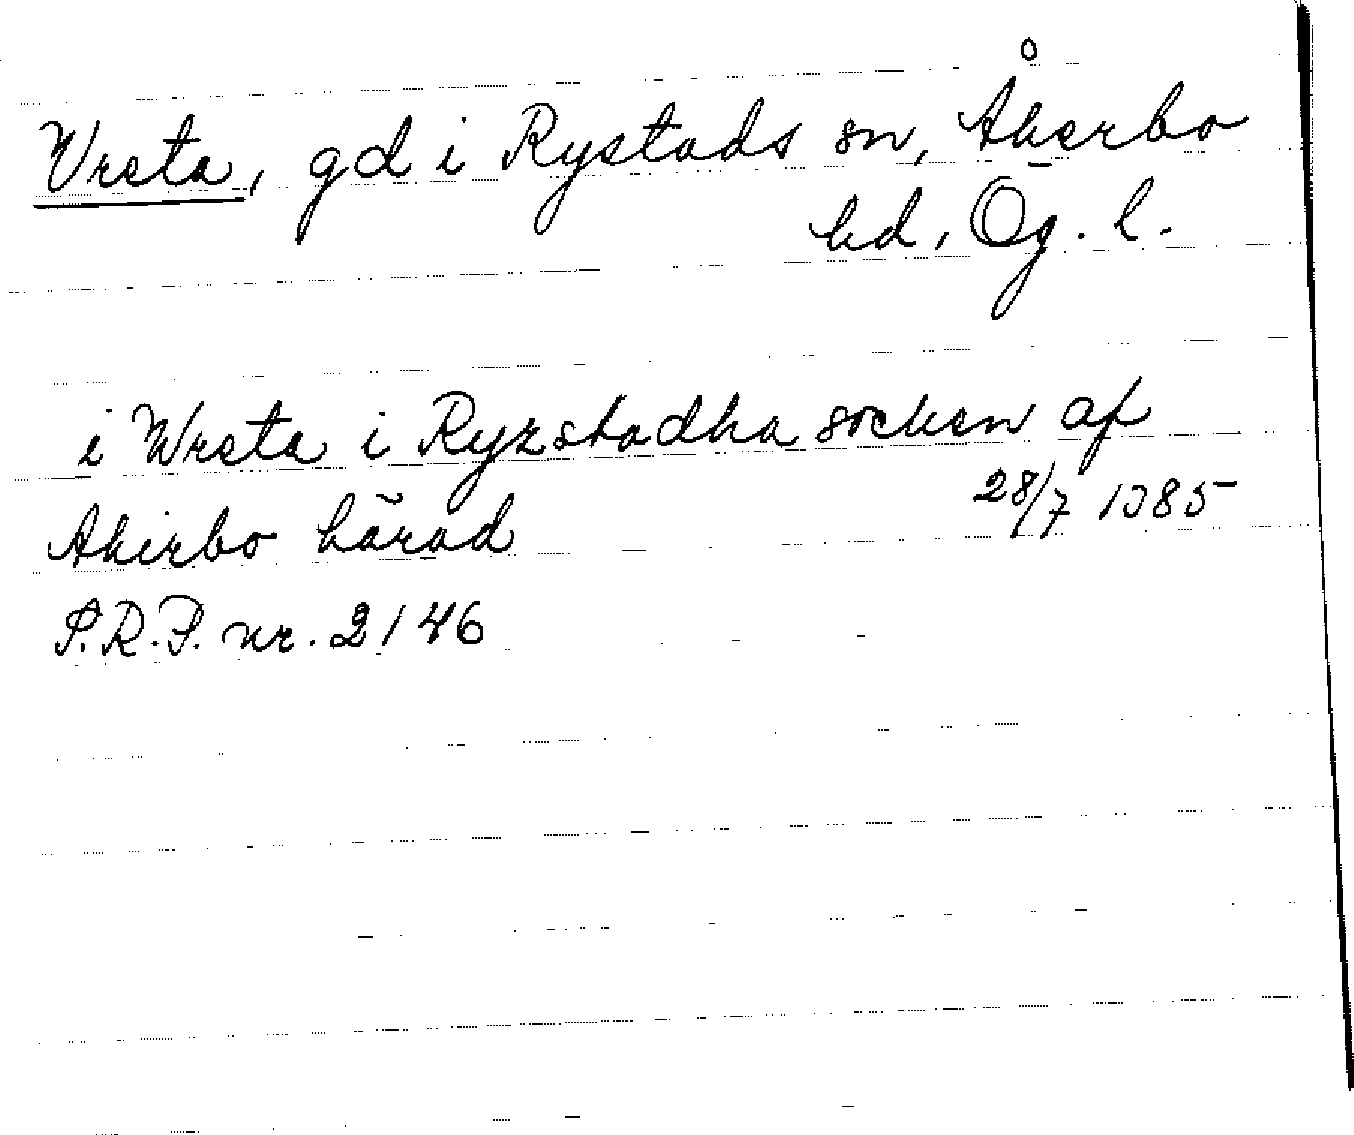 Vreta, gd i Rystads sn, Åkerbo
hd, Ög. l.
i Wreta i Ryzstadha socken af
Akirbo härad 28/7 1385
S.R.P. nr. 2146